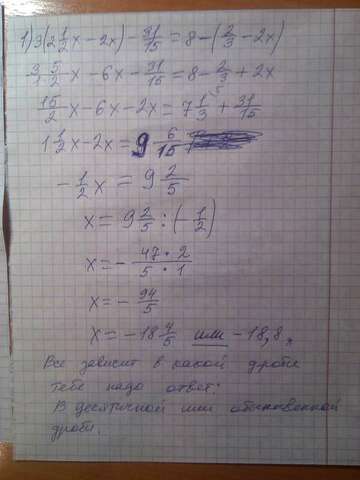 1) 3(2 1/2 x − 2x) − 31/15 = 8 − (2/3 − 2x)
3/1 · 5/2 x − 6x − 31/15 = 8 − 2/3 + 2x
15/2 x − 6x − 2x = 7 1/3 ⁵ + 31/15
1 1/2 x − 2x = 9 6/15
− 1/2 x = 9 2/5
x = 9 2/5 : (− 1/2)
x = − 47 * 2 / 5 * 1
x = − 94/5
x = − 18 4/5 или − 18,8
Все зависит в какой дроби
тебе надо ответ:
В десятичной или обыкновенной
дроби.